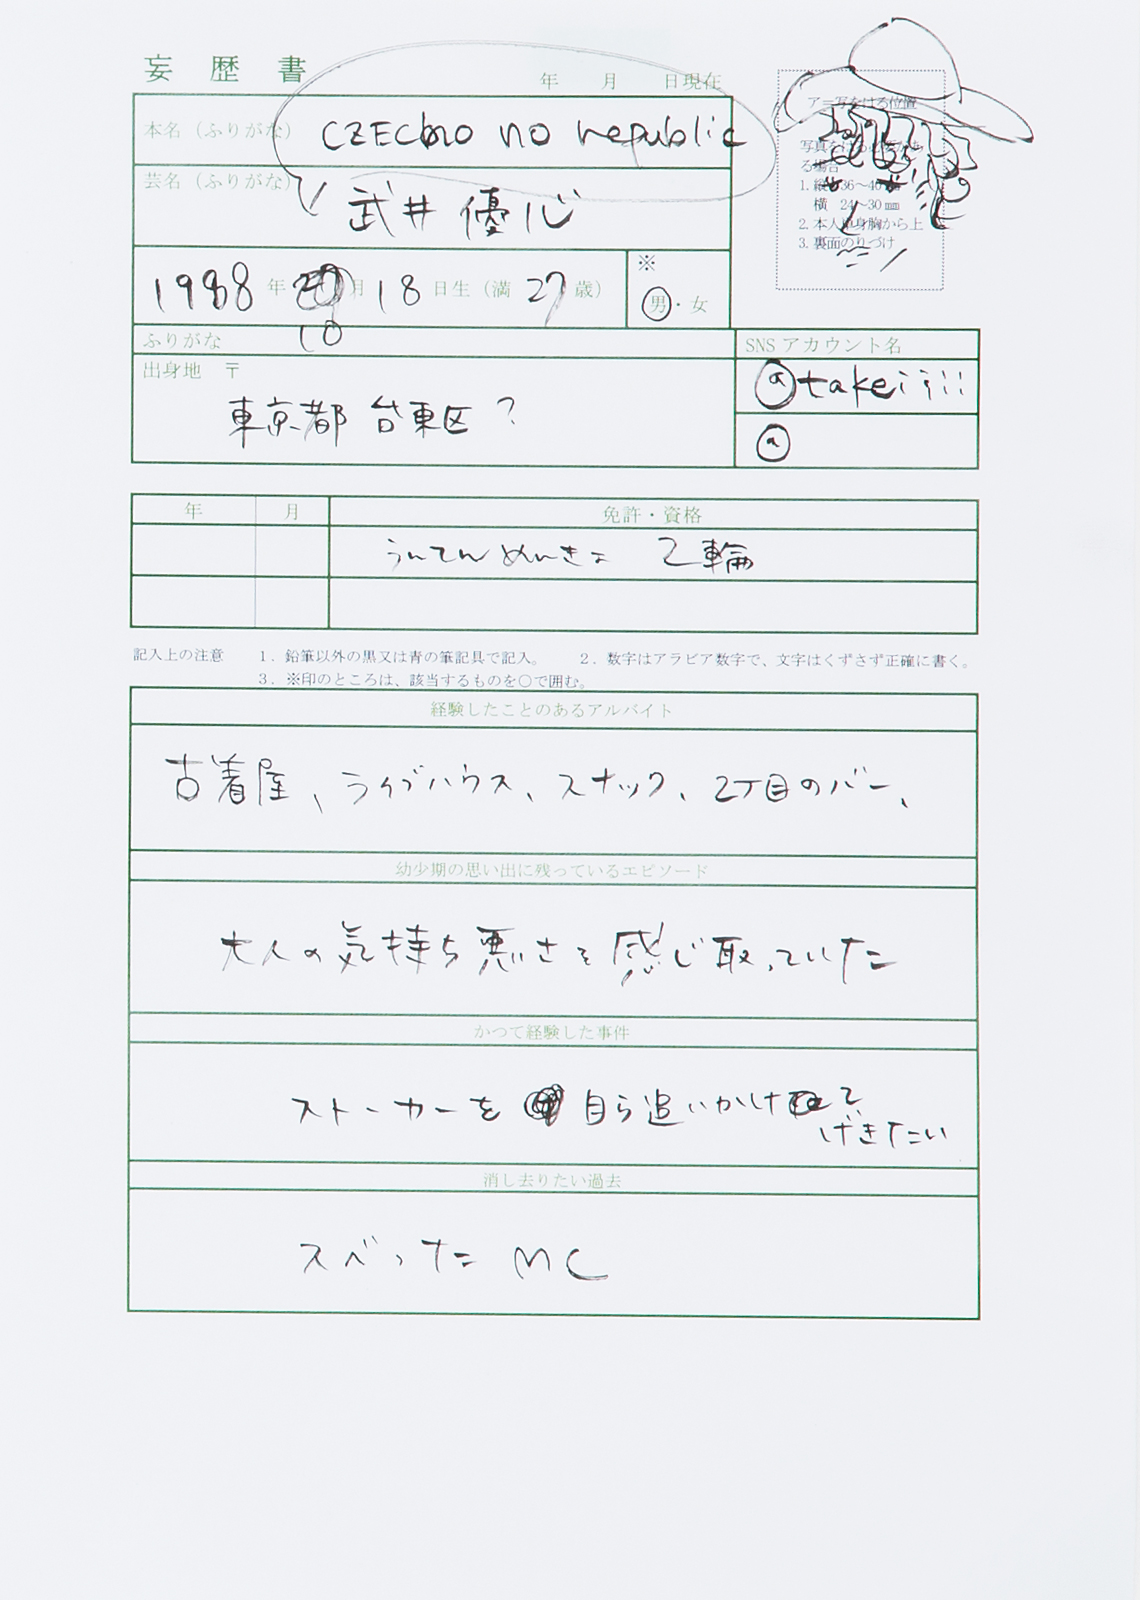 妄歴書
年 月 日現在
本名（ふりがな） CZECHO NO REPUBLIC
芸名（ふりがな） 武井優心
1988年 10月 18日生（満 27歳）
※
男・女
写真をはる位置
1. 縦 36～40㎜
横 24～30㎜
2. 本人単身胸から上
3. 裏面のりづけ
ふりがな
出身地 〒
東京都 台東区？
SNS アカウント名
@takeiiiii
@
年 月 免許・資格
うんてんめんきょ 2輪
記入上の注意 1. 鉛筆以外の黒又は青の筆記具で記入。 2. 数字はアラビア数字で、文字はくずさず正確に書く。
3. ※印のところは、該当するものを○で囲む。
経験したことのあるアルバイト
古着屋、ライブハウス、スナック、2丁目のバー、
幼少期の思い出に残っているエピソード
大人の気持ち悪さを感じ取っていた
かつて経験した事件
ストーカーを 自ら追いかけて
げきたい
消し去りたい過去
スベったMC